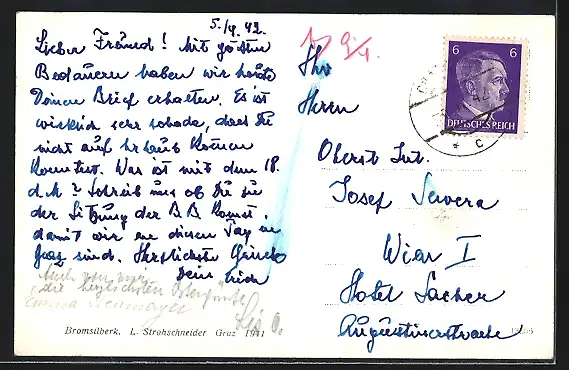 5./4. 42.
Lieber Freund! Mit großem
Bedauern haben wir heute
Deinen Brief erhalten. Es ist
wirklich sehr schade, dass Du
nicht auf Urlaub kommen
konntest. Was ist mit dem 18.
d. M.? Schreib uns ob Du zu
der Sitzung der B.B. kommst,
damit wir an diesen Tag in
Graz sind. Herzlichste Grüße
Dein Erich
Auch von mir
die herzlichsten Ostergrüße
Bromsilberk. L. Strohschneider Graz 1941
9/4.
Ihr
Herrn
Oberst Int.
Josef Severa
Wien I
Hotel Sacher
Augustinerstraße
6 6
DEUTSCHES REICH
* c